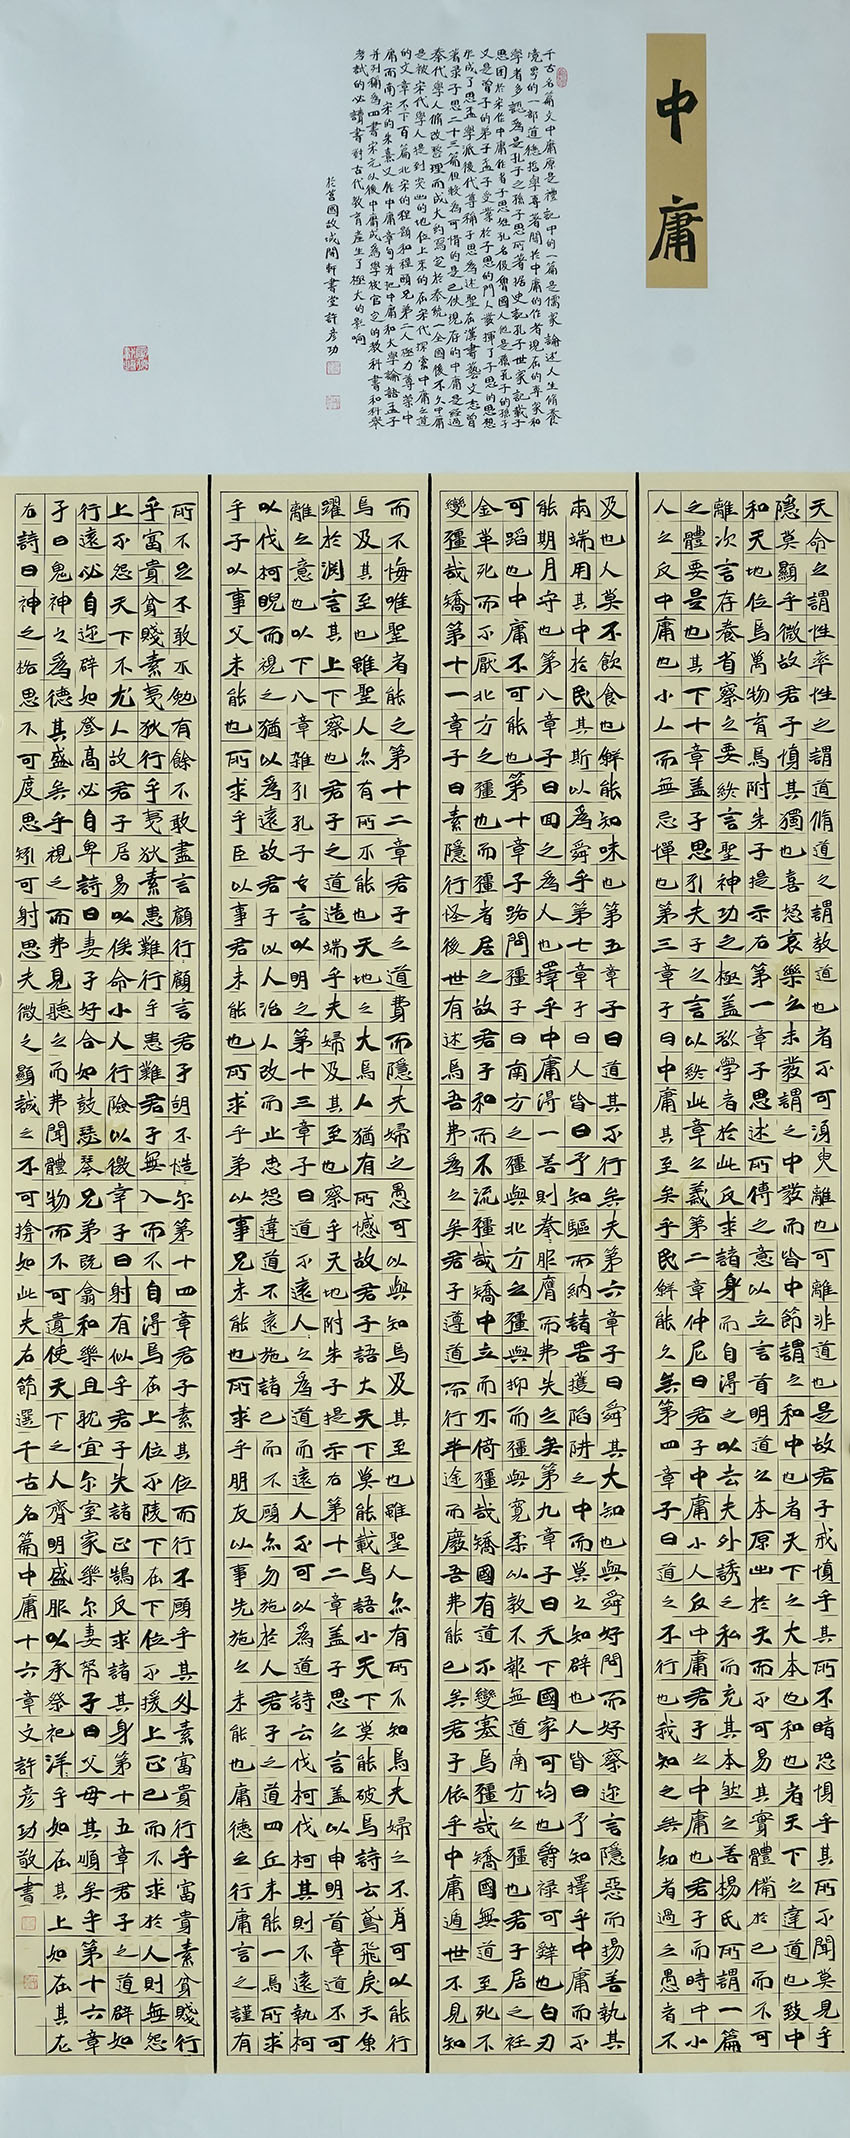 中庸
千古名篇文中庸原是禮記中的一篇是儒家論述人生脩養
境界的一部道德哲學專著關於中庸的作者現在的專家和
學者多認為是孔子之孫子思所著據史記孔子世家記載子
思困於宋作中庸作者子思姓孔名伋魯國人他是孔子的孫子
又是曾子的弟子孟子受業於子思的門人發揮了子思的思想
形成了思孟學派後代尊稱子思為述聖在漢書藝文志曾
著录子思二十三篇但較為可惜的是已佚現存的中庸是經過
秦代學人脩改整理而成大約寫定於秦統一全國後不久中庸
是被宋代學人提到突出的地位上來的在宋代探索中庸之道
的文章不下百篇北宋的程顥和程頤兄弟二人極力尊崇中
庸而南宋的朱熹又作中庸章句并把中庸和大學論語孟子
并列稱為四書宋元以後中庸成為學校官定的教科書和科舉
考試的必讀書對古代教育產生了極大的影响
於莒國故城閒軒書堂許彥功
天命之謂性率性之謂道脩道之謂教道也者不可湏臾離也可離非道也是故君子戒慎乎其所不睹恐惧乎其所不聞莫見乎
隱莫顯乎微故君子慎其獨也喜怒哀樂之未發謂之中發而皆中節謂之和中也者天下之大本也和也者天下之達道也致中
和天地位焉萬物育焉附朱子提示右第一章子思述所傳之意以立言首明道之本原出於天而不可易其實體備於己而不可
離次言存養省察之要終言聖神功之極蓋欲學者於此反求諸身而自得之以去夫外誘之私而充其本然之善楊氏所謂一篇
之體要是也其下十章蓋子思引夫子之言以終此章之義第二章仲尼曰君子中庸小人反中庸君子之中庸也君子而時中小
人之反中庸也小人而無忌憚也第三章子曰中庸其至矣乎民鮮能久矣第四章子曰道之不行也我知之矣知者過之愚者不
及也人莫不飲食也鮮能知味也第五章子曰道其不行矣夫第六章子曰舜其大知也與舜好問而好察迩言隱惡而揚善執其
兩端用其中於民其斯以為舜乎第七章子曰人皆曰予知驅而納諸罟擭陷阱之中而莫之知辟也人皆曰予知擇乎中庸而不
能期月守也第八章子曰回之為人也擇乎中庸得一善則拳服膺而弗失之矣第九章子曰天下國家可均也爵祿可辤也白刃
可蹈也中庸不可能也第十章子路問彊子曰南方之彊與北方之彊與抑而彊與寬柔以教不報無道南方之彊也君子居之衽
金革死而不厭北方之彊也而彊者居之故君子和而不流彊哉矯中立而不倚彊哉矯國有道不變塞焉彊哉矯國無道至死不
變彊哉矯第十一章子曰素隱行怪後世有述焉吾弗為之矣君子遵道而行半途而廢吾弗能已矣君子依乎中庸遁世不見知
而不悔唯聖者能之第十二章君子之道費而隱夫婦之愚可以與知焉及其至也雖聖人亦有所不知焉夫婦之不肖可以能行
焉及其至也雖聖人亦有所不能也天地之大焉人猶有所憾故君子語大天下莫能載焉語小天下莫能破焉詩云鳶飛戾天魚
躍於淵言其上下察也君子之道造端乎夫婦及其至也察乎天地附朱子提示右第十二章蓋子思之言蓋以申明首章道不可
離之意也以下八章雜引孔子之言以明之第十三章子曰道不遠人之為道而遠人不可以為道詩云伐柯伐柯其則不遠執柯
以伐柯睨而視之猶以為遠故君子以人治人改而止忠恕違道不遠施諸己而不願亦勿施於人君子之道四丘未能一焉所求
乎子以事父未能也所求乎臣以事君未能也所求乎弟以事兄未能也所求乎朋友以事先施之未能也庸德之行庸言之謹有
所不足不敢不勉有餘不敢盡言顧行顧言君子胡不慥尔第十四章君子素其位而行不願乎其外素富貴行乎富貴素貧賤行
乎富貴貧賤素夷狄行乎夷狄素患難行乎患難君子無入而不自得焉在上位不陵下在下位不援上正己而不求於人則無怨
上不怨天下不尤人故君子居易以俟命小人行險以徼幸子曰射有似乎君子失諸正鵠反求諸其身第十五章君子之道辟如
行遠必自迩辟如登高必自卑詩曰妻子好合如鼓瑟琴兄弟既翕和樂且耽宜尔室家樂尔妻帑子曰父母其順矣乎第十六章
子曰鬼神之為德其盛矣乎視之而弗見聽之而弗聞體物而不可遺使天下之人齊明盛服以承祭祀洋乎如在其上如在其左
右詩曰神之格思不可度思矧可射思夫微之顯誠之不可揜如此夫右節選千古名篇中庸十六章文許彥功敬書